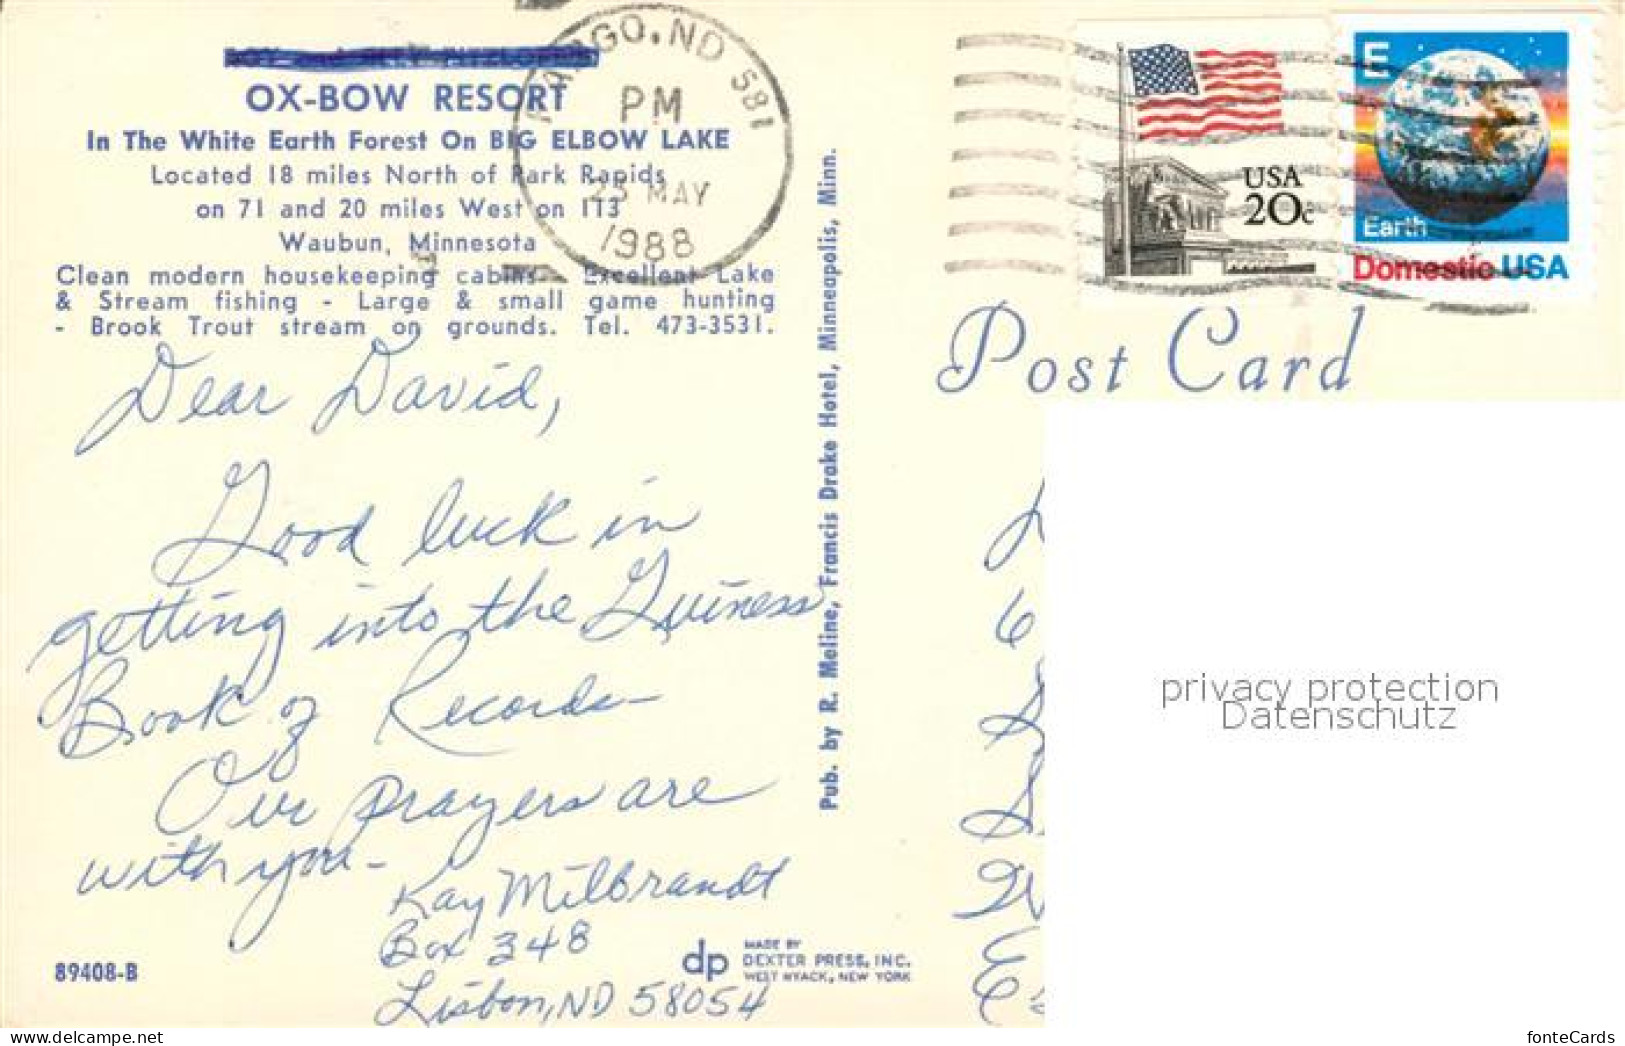 OX-BOW RESORT
In The White Earth Forest On BIG ELBOW LAKE
Located 18 miles North of Park Rapids
on 71 and 20 miles West on 113
Waubun, Minnesota
Clean modern housekeeping cabins- Excellent Lake
& Stream fishing - Large & small game hunting
- Brook Trout stream on grounds. Tel. 473-3531.
FARGO, ND 581
PM
23 MAY
1988
USA
20c
E
Earth
Domestic USA
Post Card
Dear David,
Good luck in
getting into the Guiness
Book of Records-
Our prayers are
with you-
Kay Milbrandt
Box 348
Lisbon, ND 58054
Pub. by R. Meline, Francis Drake Hotel, Minneapolis, Minn.
89408-B
dp
MADE BY
DEXTER PRESS, INC.
WEST NYACK, NEW YORK
6
privacy protection
Datenschutz
fonteCards